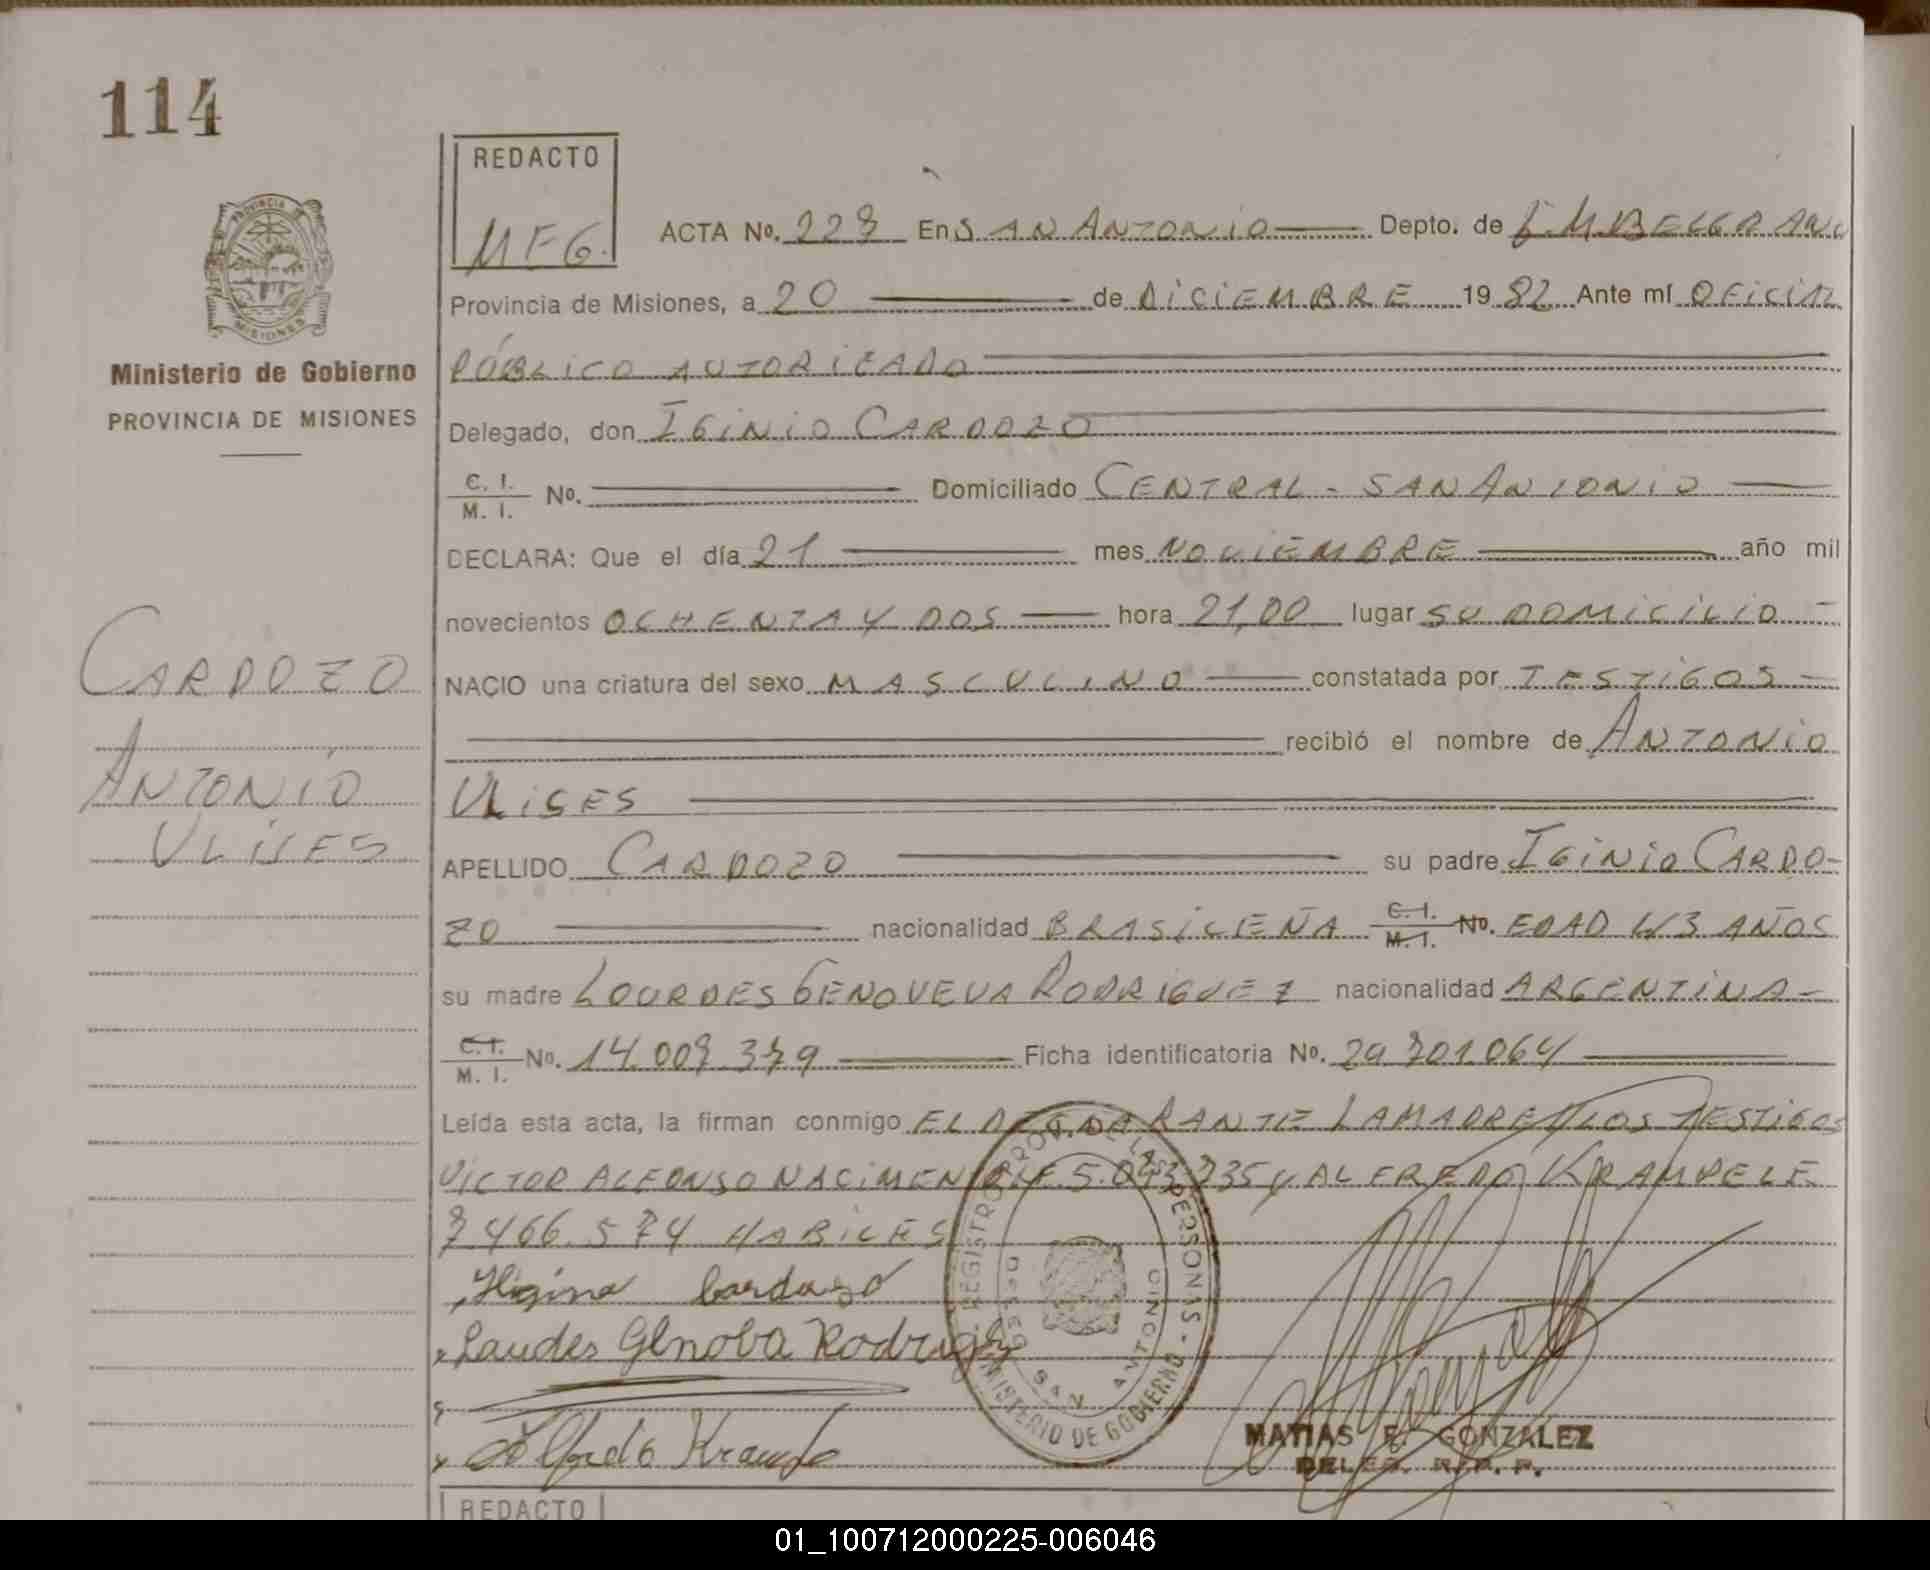 114
REDACTO
MFG.
ACTA No. 227 En SAN ANTONIO Depto. de G.M.BELGRANO
PROVINCIA DE
MISIONES
Provincia de Misiones, a 20 de DICIEMBRE 1982 Ante mí OFICIAL
Ministerio de Gobierno
PÚBLICO AUTORIZADO
PROVINCIA DE MISIONES
Delegado, don IGINIO CARDOZO
C. I. M. I. No. Domiciliado CENTRAL - SAN ANTONIO
DECLARA: Que el día 21 mes NOVIEMBRE año mil
novecientos OCHENTA Y DOS hora 21,00 lugar SU DOMICILIO
CARDOZO
NACIO una criatura del sexo MASCULINO constatada por TESTIGOS
recibió el nombre de ANTONIO
ANTONIO
ULISES
ULISES
APELLIDO CARDOZO su padre IGINIO CARDO-
ZO nacionalidad BRASILEÑA C. I. M. I. No. EDAD 43 AÑOS
su madre LOURDES GENOVEVA RODRIGUEZ nacionalidad ARGENTINA
C. I. M. I. No. 14.007.379 Ficha identificatoria No. 29.701.064
Leída esta acta, la firman conmigo EL DECLARANTE LA MADRE Y LOS TESTIGOS
VICTOR ALFONSO NACIMEN Y ALFREDO KRAMPE LE
7.466.574 HABILES
Higino Cardozo
Laudes Genoba Rodrigez
Alfredo Krampe
REGISTRO PROV. DE LAS PERSONAS - MINISTERIO DE GOBIERNO
DELEG SAN ANTONIO
MATIAS F. GONZALEZ
DELEG. R. P. P.
REDACTO
01_100712000225-006046